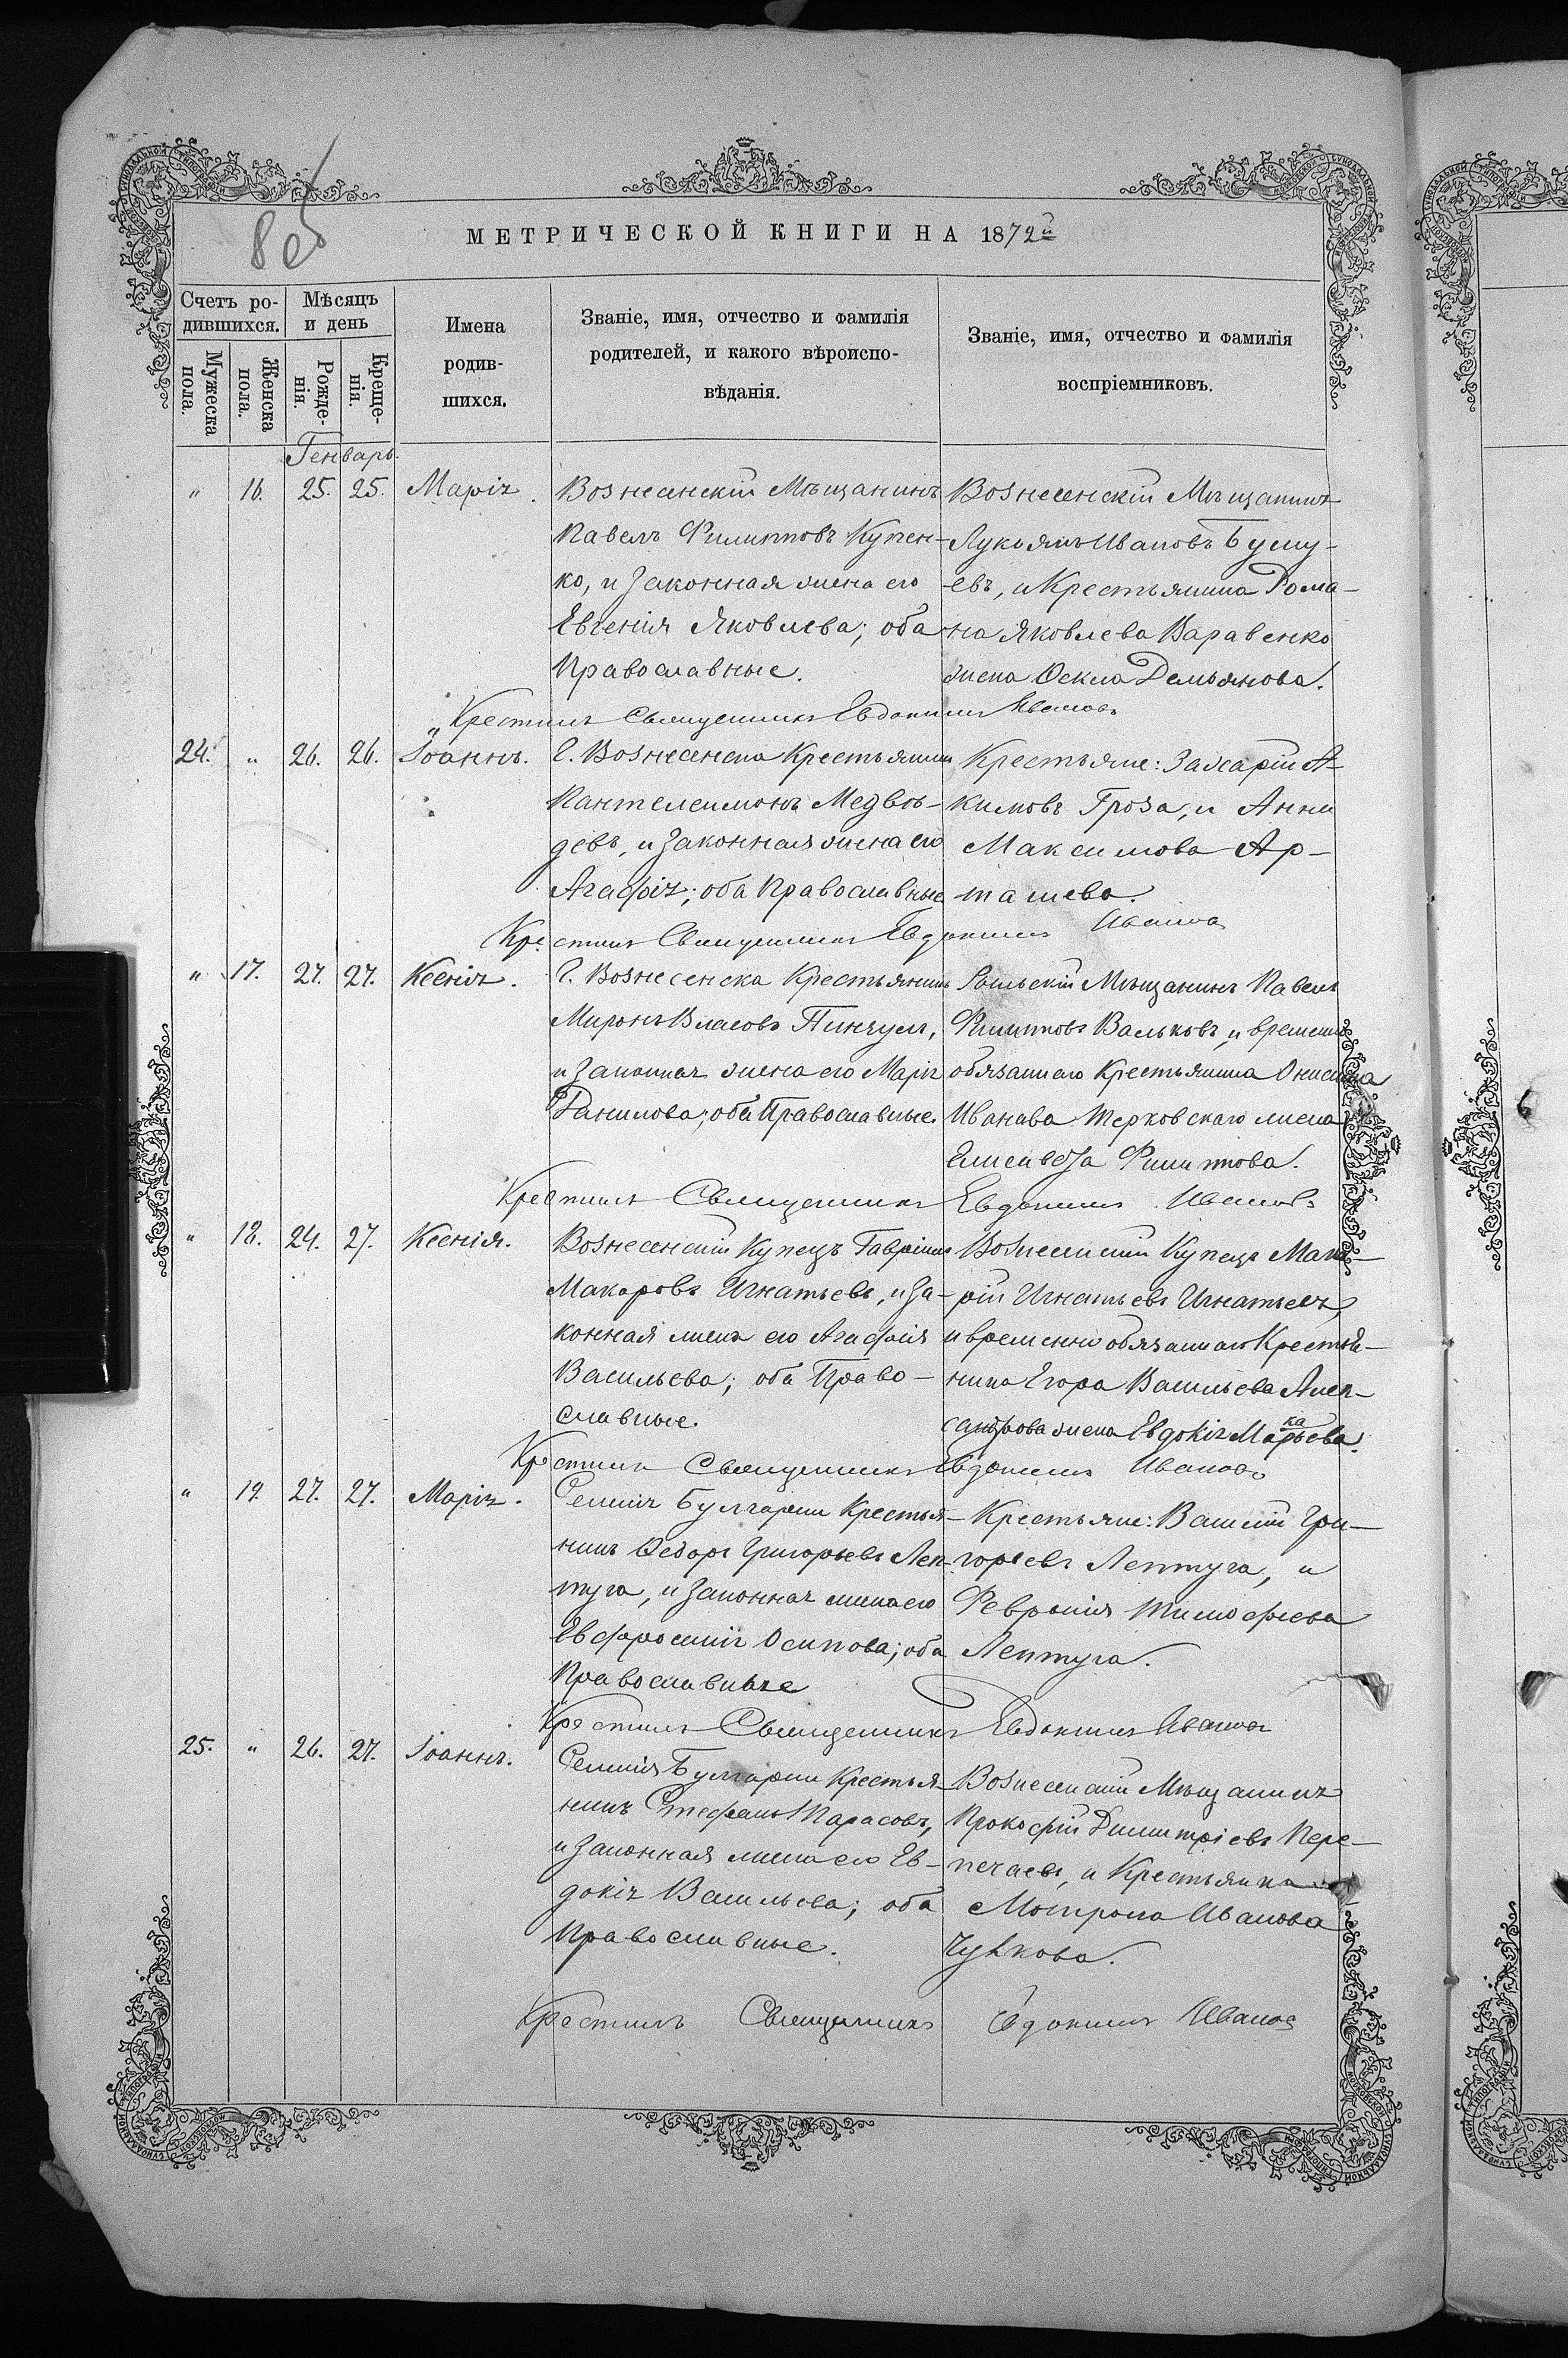 8 об
МЕТРИЧЕСКОЙ КНИГИ НА 1872й
Счетъ ро-
дившихся.
Мѣсяцъ
и день
Мужеска
пола.
Женска
пола.
Рожде-
нія.
Креще-
нія.
Имена
родив-
шихся.
Званіе, имя, отчество и фамилія
родителей, и какого вѣроиспо-
вѣданія.
Званіе, имя, отчество и фамилія
воспріемниковъ.
Генварь.
" 16. 25. 25. Марія.
Вознесенскій Мѣщанинъ
Павелъ Филиповъ Купен-
ко, и законная жена его
Евгенія Яковлева; оба
Православные.
Вознесенскій Мѣщанинъ
Лукьянъ Ивановъ
евъ, и Крестьянина Рома-
на Яковлева Варавенко
жена Демьянова.
Крестилъ Священникъ Евдокимъ Ивановъ
24. " 26. 26. Іоаннъ.
Г. Вознесенска Крестьянинъ
Пантелеимонъ Медвѣ-
девъ, и законная жена его
Агафія; оба Православные
Крестьяне: Захарій А-
кимовъ Гроза, и Анна
Максимова Ар-
ташева.
Крестилъ Священникъ Евдокимъ Ивановъ
" 17. 27. 27. Ксенія.
Г. Вознесенска Крестьянинъ
Миронъ Власовъ
и законная жена его Марія
Данилова; оба Православные.
Мѣщанинъ Павелъ
Филиповъ Вальковъ, и временно
обязаннаго Крестьянина Онисима
Иванова Терковскаго жена
Елисавета Филипова.
Крестилъ Священникъ Евдокимъ Ивановъ
" 18. 24. 27. Ксенія.
Вознесенскій Купецъ Гавріилъ
Макаровъ Игнатьевъ, и за-
конная жена его Агафія
Васильева; оба Право-
славные.
Вознесенскій Купецъ Мака-
рій Игнатьевъ Игнатьевъ,
и временно обязаннаго Крестья-
нина Егора Васильева Алек-
сандрова жена Евдокія Макарьева.
Крестилъ Священникъ Евдокимъ Ивановъ
" 19. 27. 27. Марія.
Селенія Булгарки Крестья-
нинъ Ѳедоръ Григорьевъ Леп-
туга, и законная жена его
Евфросинія Осипова; оба
Православные
Крестьяне: Василій Гри-
горьевъ Лептуга, и
Февронія Тимофеева
Лептуга.
Крестилъ Священникъ Евдокимъ Ивановъ
25. " 26. 27. Іоаннъ.
Селенія Булгарки Крестья-
нинъ Стефанъ Тарасовъ,
и законная жена его Ев-
докія Васильева; оба
Православные.
Вознесенскій Мѣщанинъ
Прокофій Димитріевъ Пере-
печаевъ, и Крестьянка
Мотрона Иванова
Чуйкова.
Крестилъ Священникъ Евдокимъ Ивановъ